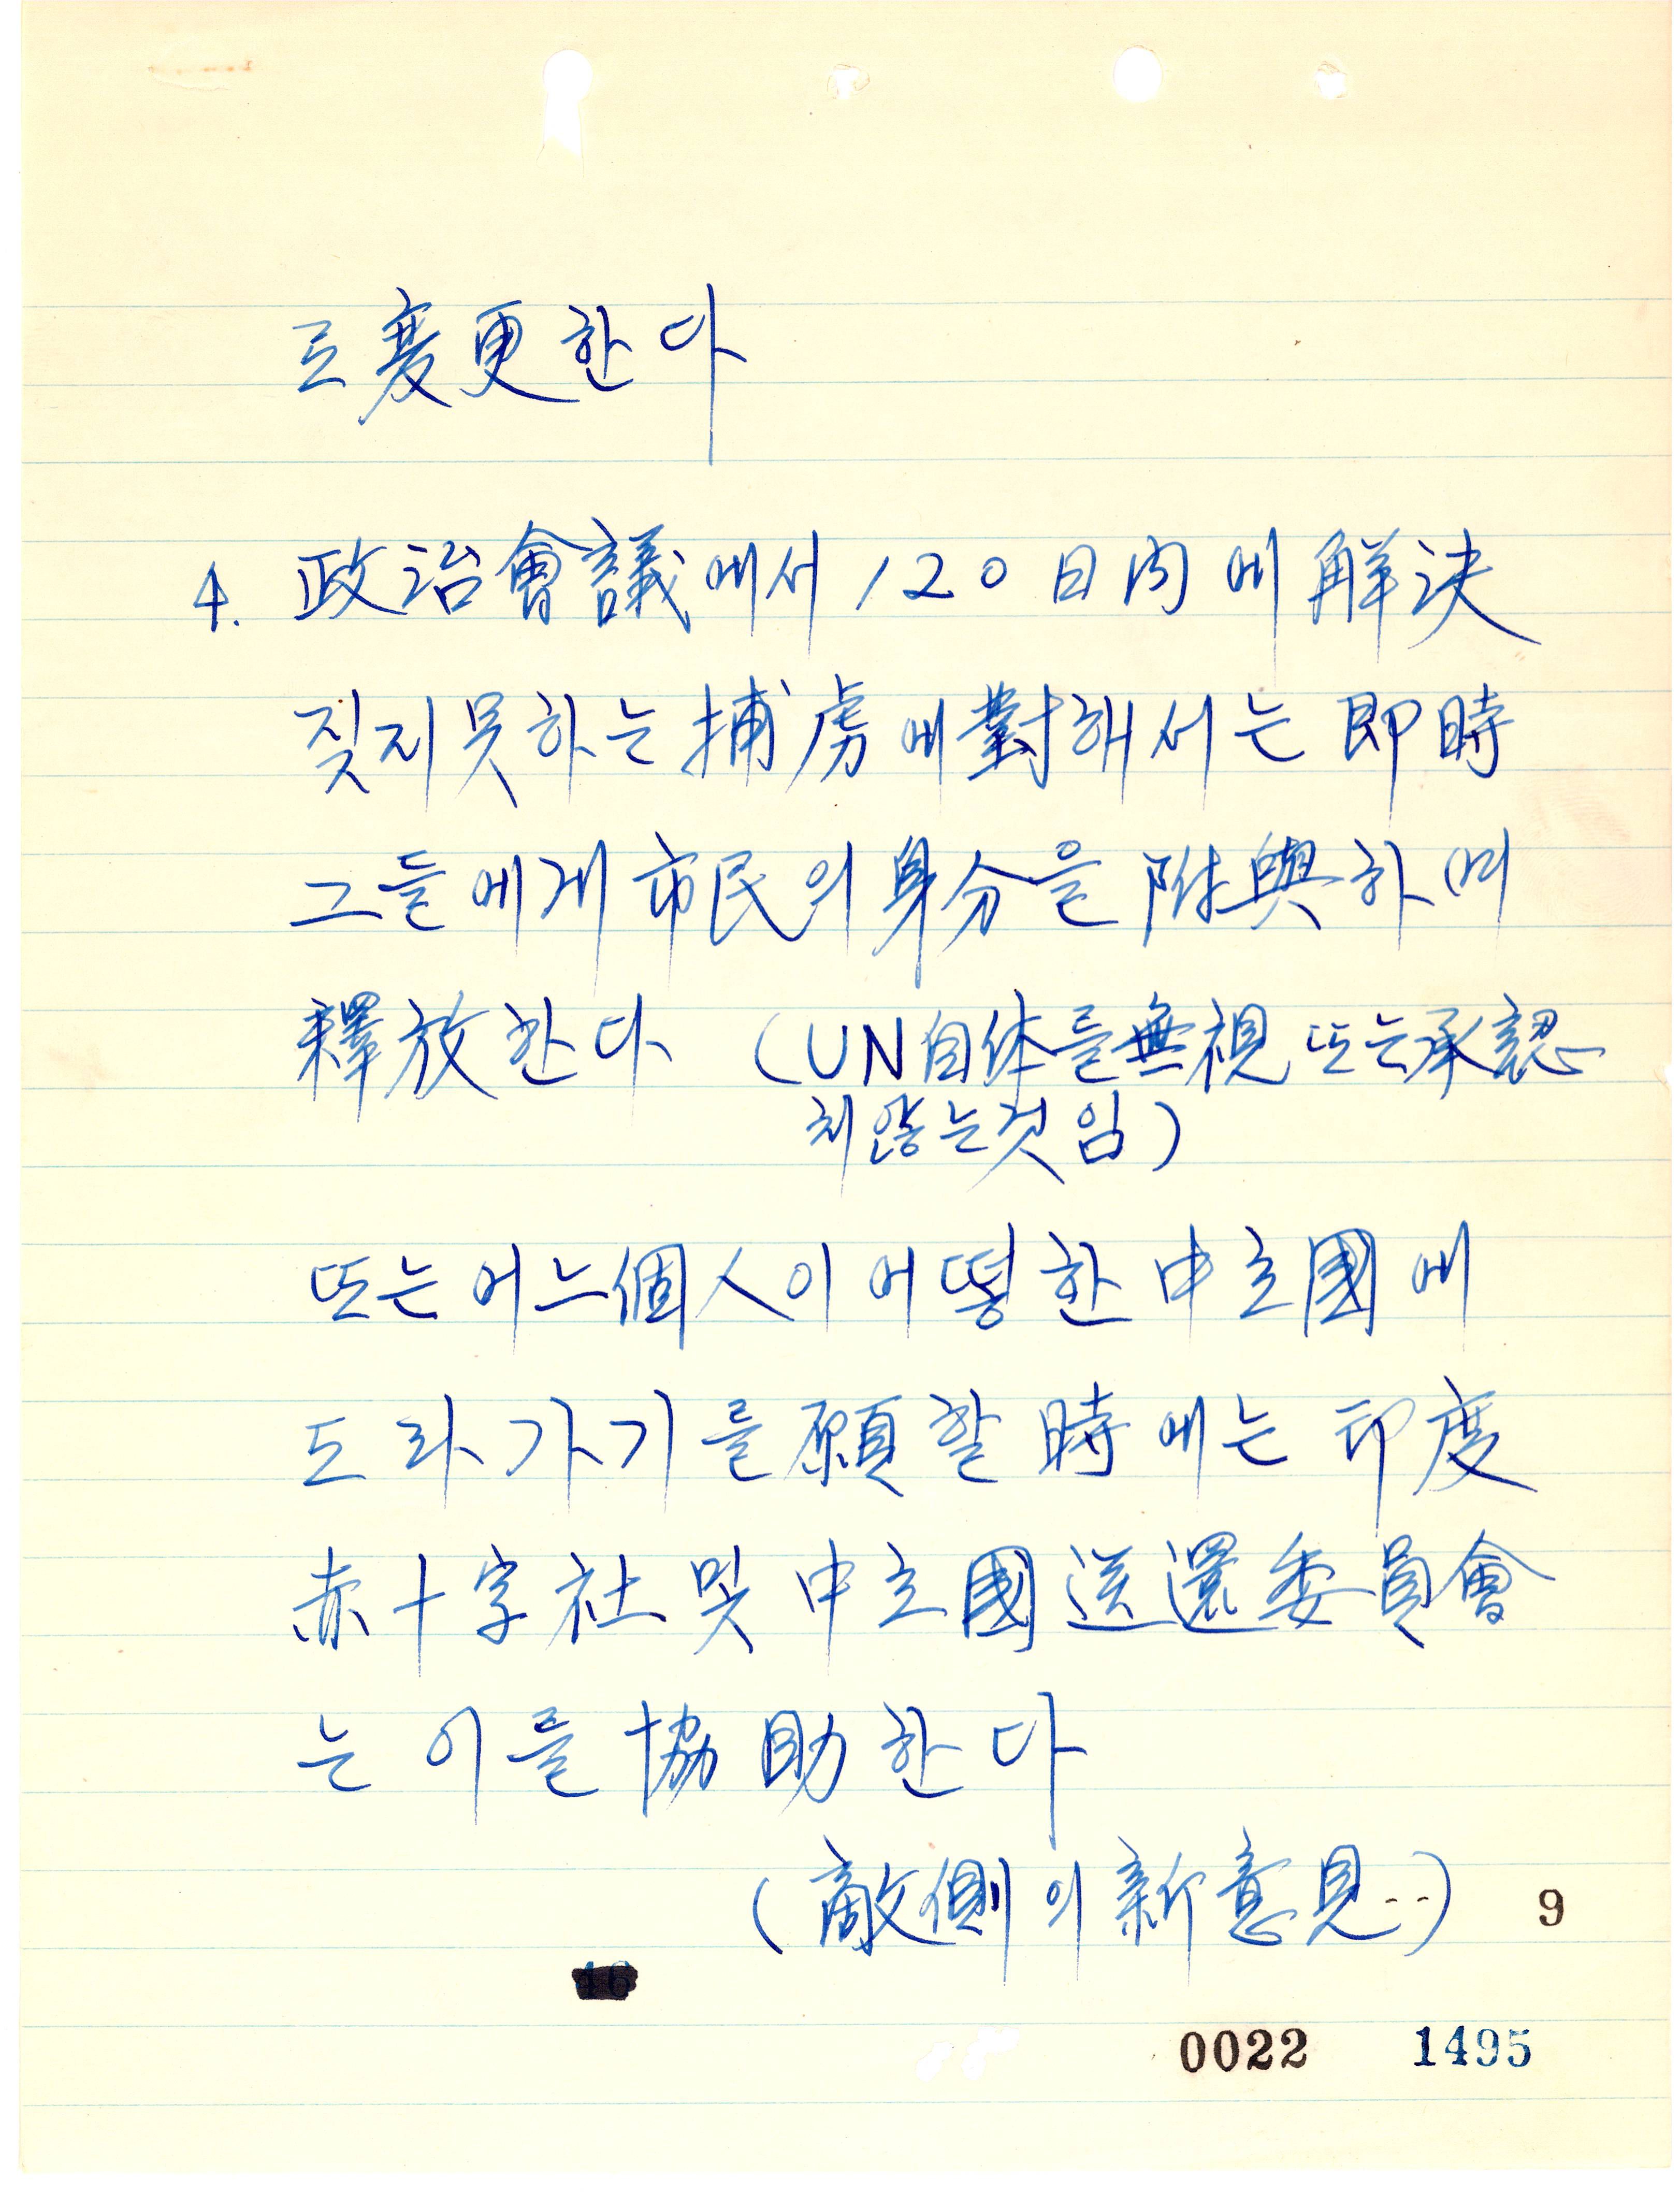 로 變更한다
4. 政治會議에서 120日內에 解決
짖지못하는 捕虜에 對해서는 即時
그들에게 市民의 身分을 附與하며
釋放한다 (UN自体를 無視 또는 承認
치않는것임)
또는 어느 個人이 어떻한 中立國에
도라가기를 願할 時에는 印度
赤十字社 및 中立國送還委員會
는 이를 協助한다
(敵側의 新意見--) 9
0022 1495